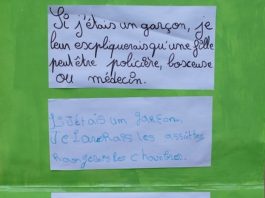 Si j'étais un garçon, je
leur expliquerais qu'une fille
peut être policière, boxeuse
ou médecin.
Si j'étais un garçon,
je laverais les assiettes
rangerais les chambres.